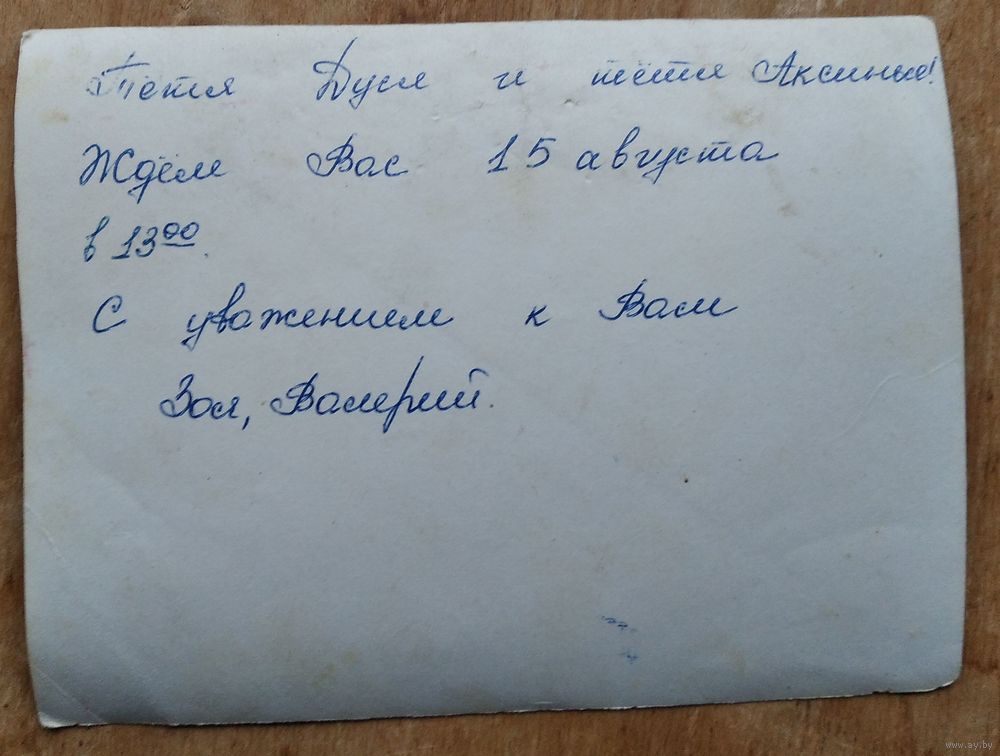 Тётя Дуся и тётя Аксинья!
Ждём Вас 15 августа
в 13⁰⁰.
С уважением к Вам
Зоя, Валерий.
www.ay.by